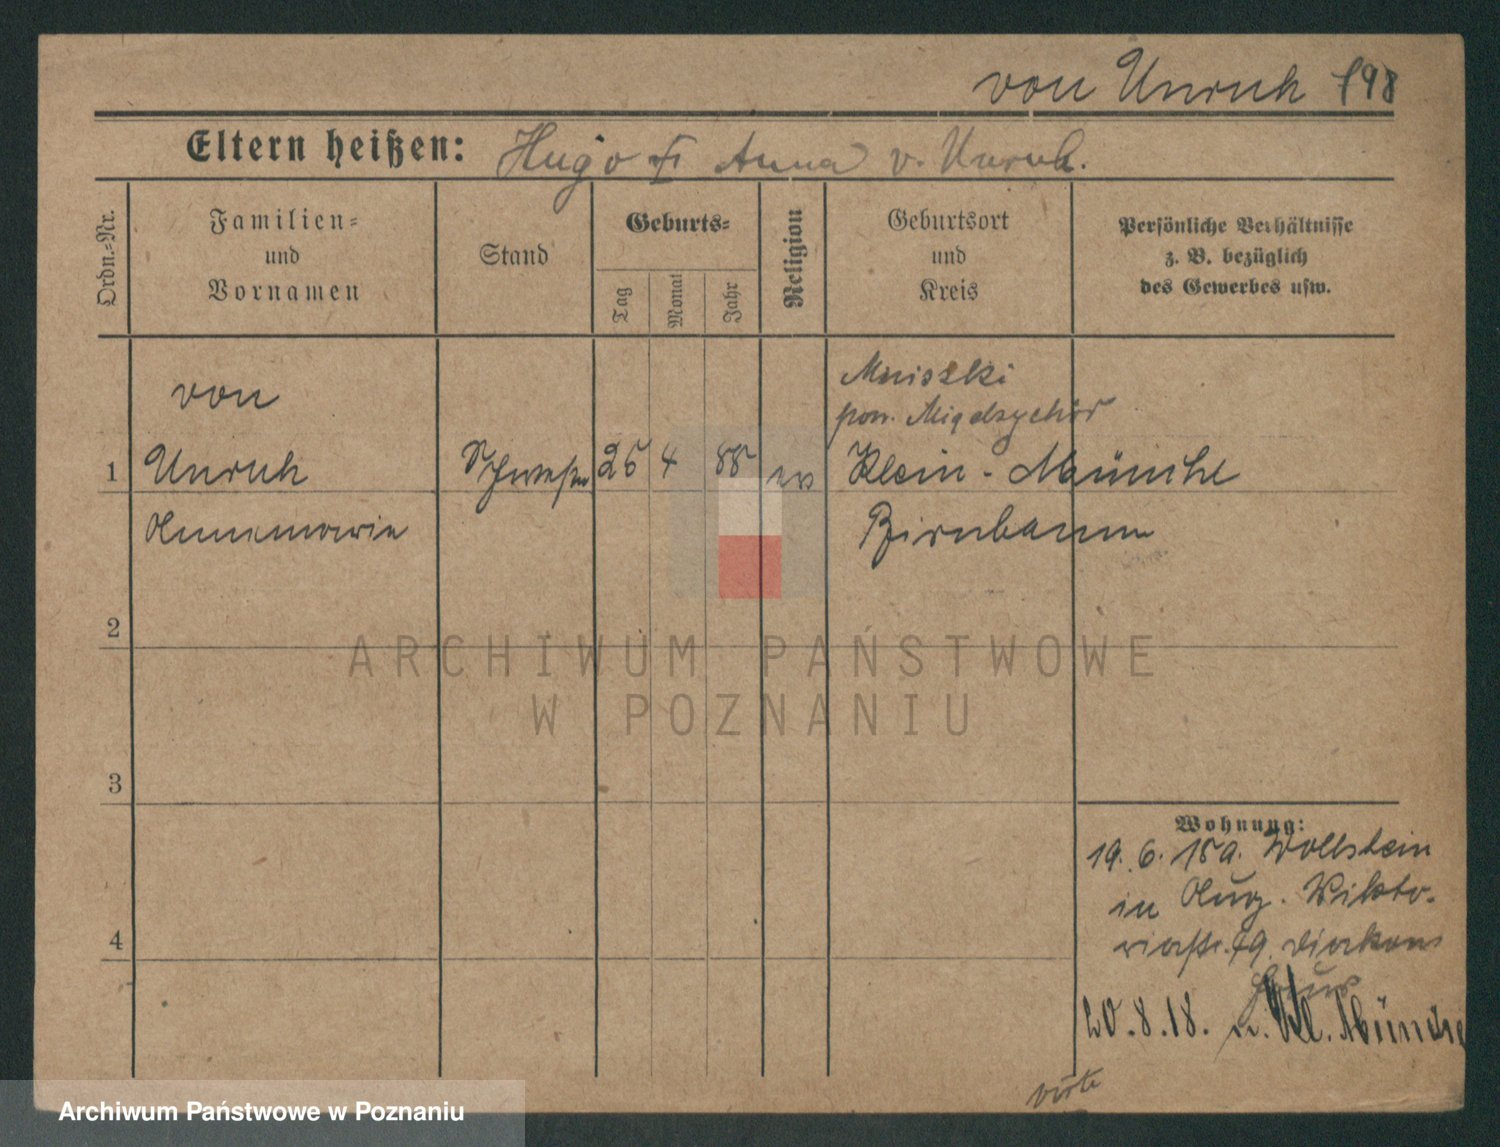 von Unruh 198
Eltern heißen: Hugo Anna v. Unruh.
Ordn.=Nr.
Familien=
und
Vornamen
Stand
Geburts=
Tag
Monat
Jahr
Religion
Geburtsort
und
Kreis
Persönliche Verhältnisse
z. B. bezüglich
des Gewerbes usw.
Mniszki
pow. Międzychód
von
1 Unruh Schwester 26 4 88 ev Klein-Münche
Annemarie Birnbaum
2
3
4
ARCHIWUM PAŃSTWOWE
W POZNANIU
Wohnung:
19. 6. 18 a. Wollstein
in Aug. Vikto-
riastr. 19. Diakon
haus
20.8.18. n. Kl. Münche
Archiwum Państwowe w Poznaniu